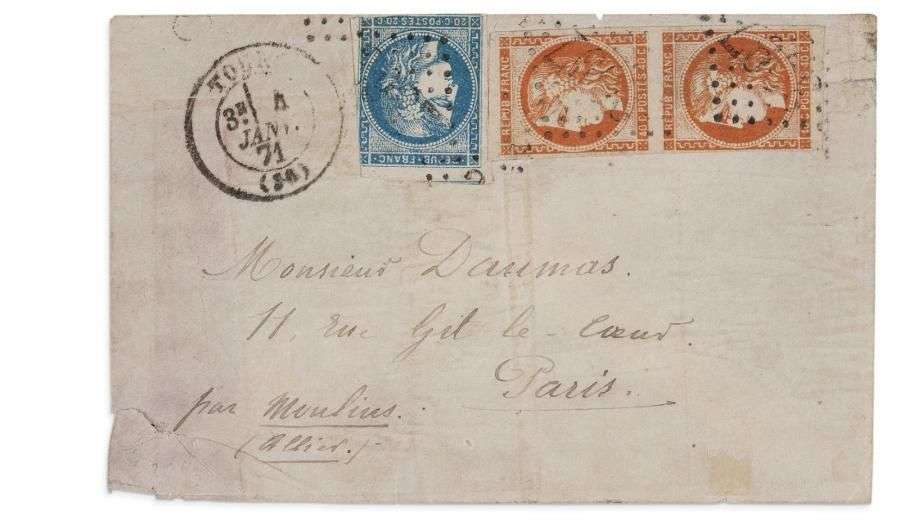 20 C·POSTES·20 C
REPUB·FRANC
REPUB·FRANC
40 C·POSTES·40 C
REPUB·FRANC
POSTES·40 C
3E
JANV.
71
Monsieur Daumas.
11, Rue Git le - Cœur.
Paris.
par Moulins.
(Allier.)